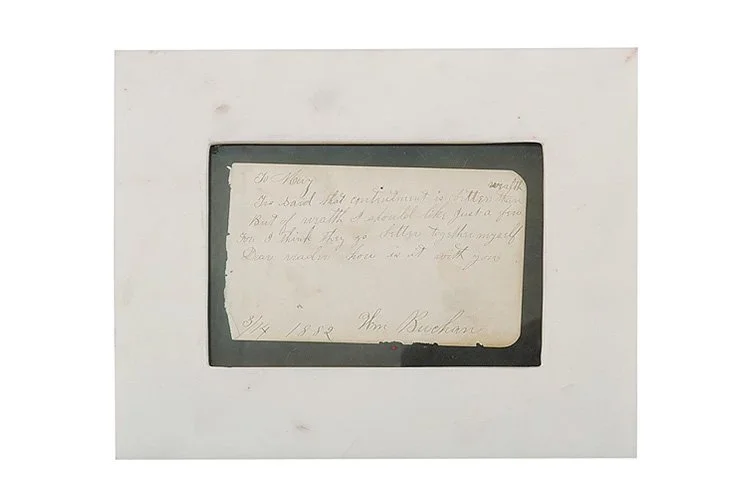 To Mary
Tis said that contentment is better than wealth
But of wealth I should like just a few
For I think they go better together myself
Dear reader how is it with you
3/14 1882 Wm Buchan